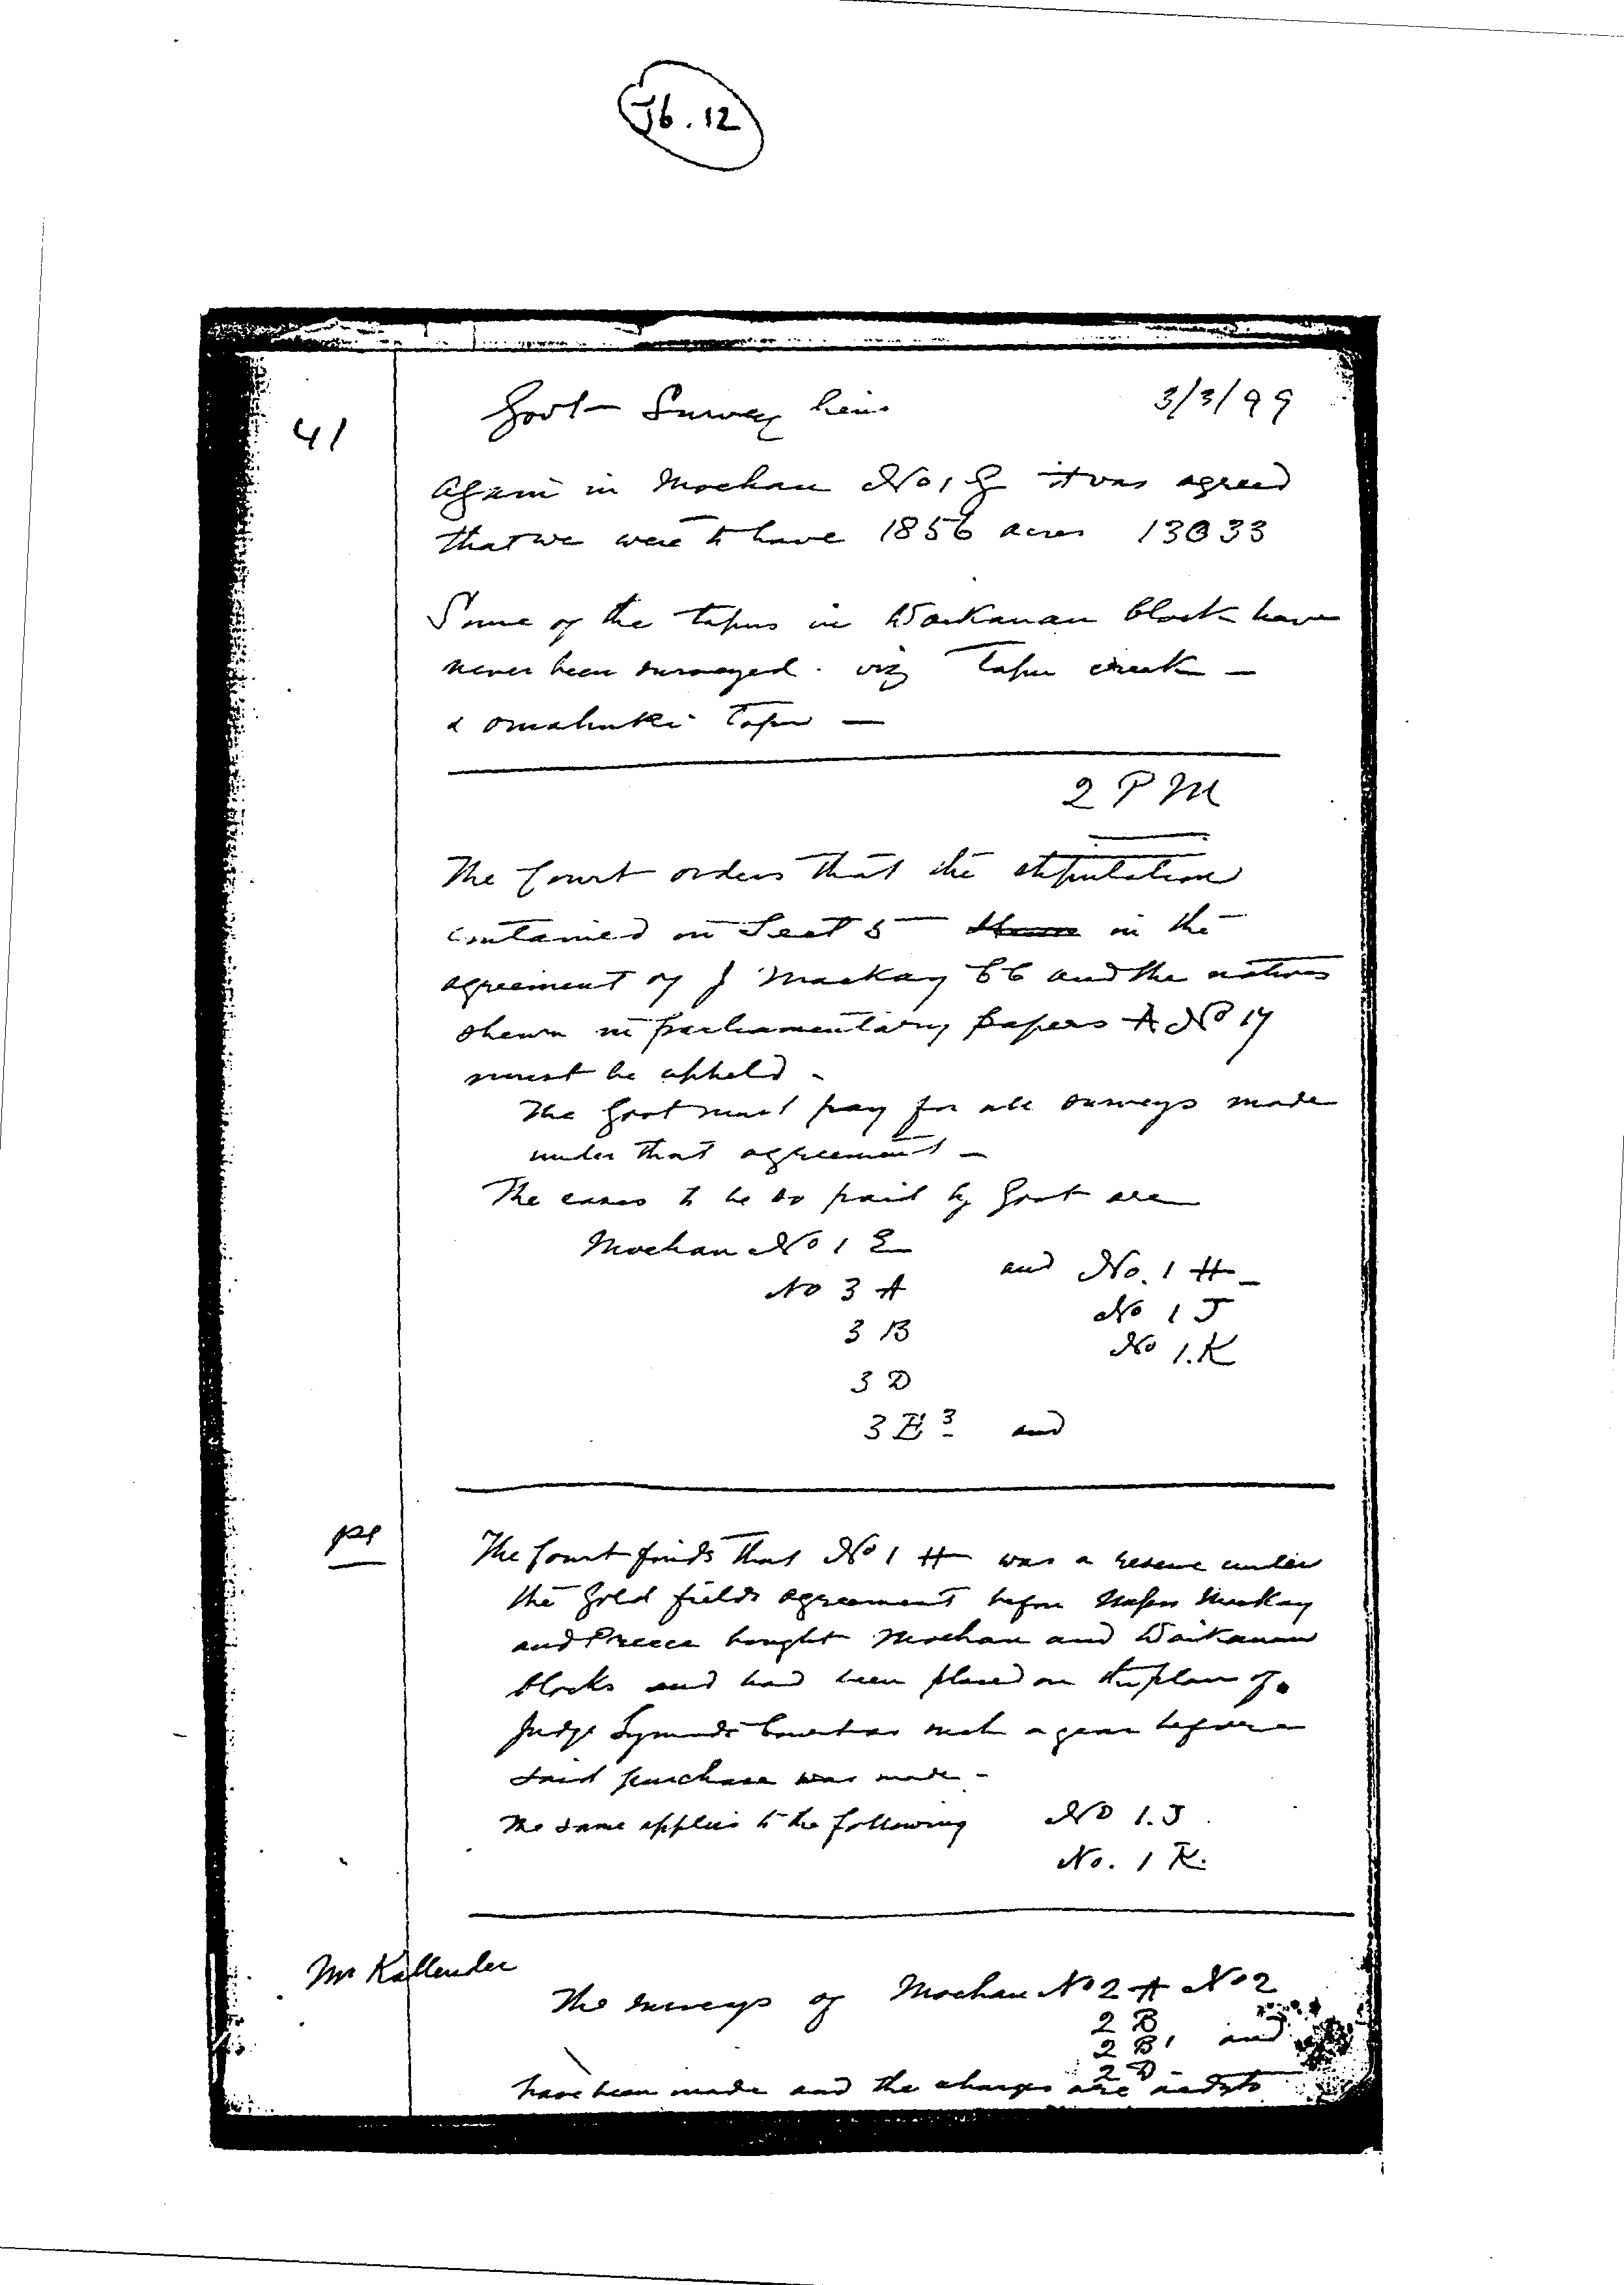 J6.12
41
Govt Survey lien 3/3/99
Again in Moehau No 1 G it was agreed
that we were to have 1856 acres 13033
Some of the tapus in Waikanau block have
never been surveyed. viz Tapu creek —
& omahuki Tapu —
2 PM
The Court orders that the stipulation
contained in Sect 5 in the
agreement of J Mackay CC and the natives
shewn in parliamentary papers A No 17
must be upheld -
The Govt must pay for all surveys made
under that agreement —
The cases to be so paid by Govt are
Moehau No 1 E
and No. 1 H —
No 3 A
No 1 J
3 B
No 1.K
3 D
3 E 3 and
The Court finds that No 1 H was a reserve under
the Gold fields agreement before Messrs Mackay
and Preece bought Moehau and Waikanau
blocks and had been placed on the plan of
Judge Symonds Court as such a year before
said purchase was made -
The same applies to the following No 1.J
No. 1 K.
Mr Kallender
The surveys of Moehau No 2 A No 2
2 B
2 B1 and
2 D
have been made and the charges are